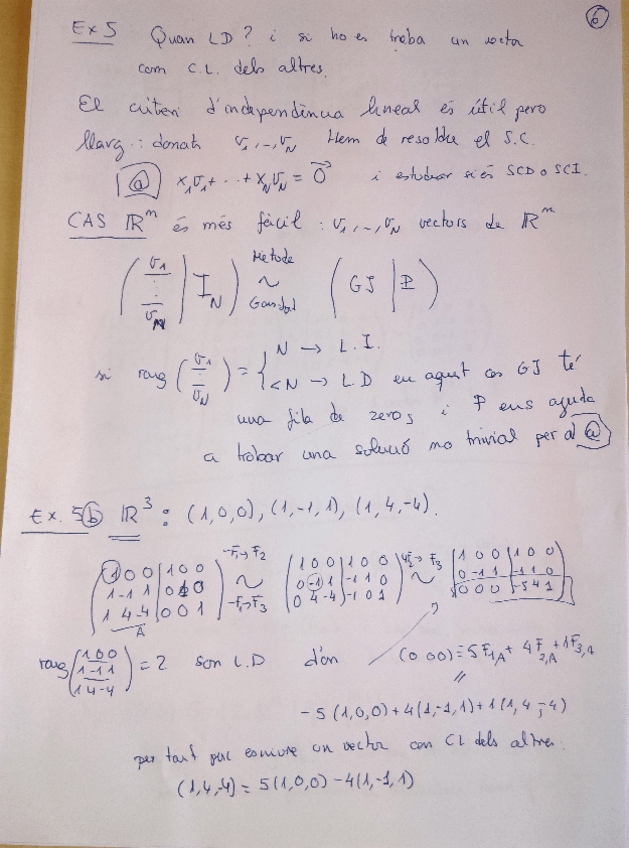 6
Ex 5 Quan LD? i si ho es troba un vector
com C.L. dels altres.
El criteri d'independència lineal és útil pero
llarg: donats v₁,..,v_N Hem de resoldre el S.C.
ⓐ x₁v₁+...+x_Nv_N = 0⃗ i estudiar si és SCD o SCI.
CAS ℝⁿ és més fàcil: v₁,..,v_N vectors de ℝⁿ
(v₁ ⋮ v_N | I_N) Mètode ~ Gauss (GJ | P)
si rang (v₁ ⋮ v_N) = { N → L.I.
<N → L.D en aquest cas GJ té
una fila de zeros i P ens ajuda
a trobar una solució no trivial per al ⓐ
Ex. 5ⓑ ℝ³: (1,0,0), (1,-1,1), (1,4,-4).
-F₁→F₂ 4F₂→F₃
(1 0 0 | 1 0 0) (1 0 0 | 1 0 0) (1 0 0 | 1 0 0)
(1 -1 1 | 0 1 0) ~ (0 -1 1 | -1 1 0) ~ (0 -1 1 | -1 1 0)
(1 4 -4 | 0 0 1) -F₁→F₃ (0 4 -4 | -1 0 1) (0 0 0 | -5 4 1)
A
rang (1 0 0 / 1 -1 1 / 1 4 -4) = 2 son L.D d'on (0 0 0) = 5F₁,A + 4F₂,A + 1F₃,A
//
-5(1,0,0)+4(1,-1,1)+1(1,4,-4)
per tant puc escriure un vector con CL dels altres:
(1,4,-4) = 5(1,0,0) -4(1,-1,1)